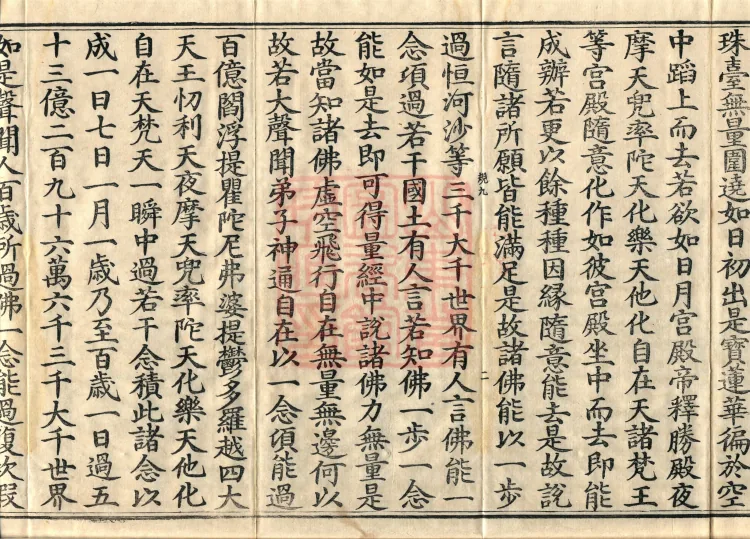 珠臺無量圍遶如日初出是寶蓮華徧於空
中蹈上而去若欲如日月宮殿帝釋勝殿夜
摩天兜率陀天化樂天他化自在天諸梵王
等宮殿隨意化作如彼宮殿坐中而去即能
成辦若更以餘種種因緣隨意能去是故說
言隨諸所願皆能滿足是故諸佛能以一步
九 二
過恒河沙等三千大千世界有人言佛能一
念頃過若干國土有人言若知佛一步一念
能如是去即可得量經中說諸佛力無量是
故當知諸佛虛空飛行自在無量無邊何以
故若大聲聞弟子神通自在以一念頃能過
百億閻浮提瞿陀尼弗婆提鬱多羅越四大
天王忉利天夜摩天兜率陀天化樂天他化
自在天梵天一瞬中過若干念積此諸念以
成一日七日一月一歲乃至百歲一日過五
十三億二百九十六萬六千三千大千世界
如是聲聞人百歲所過佛一念能過復次假